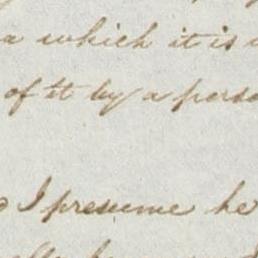 a which it is
of it by a perso
I presume he